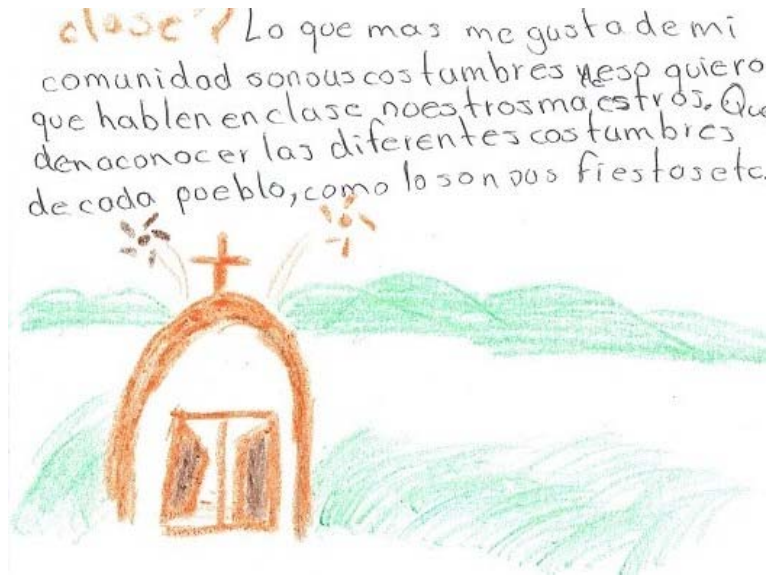 clase?/ Lo que mas me gusta de mi
comunidad son sus costumbres y eso quiero
que hablen en clase noestros maestros. Que
den a conocer las diferentes costumbres
de cada pueblo, como lo son sus fiestas etc.